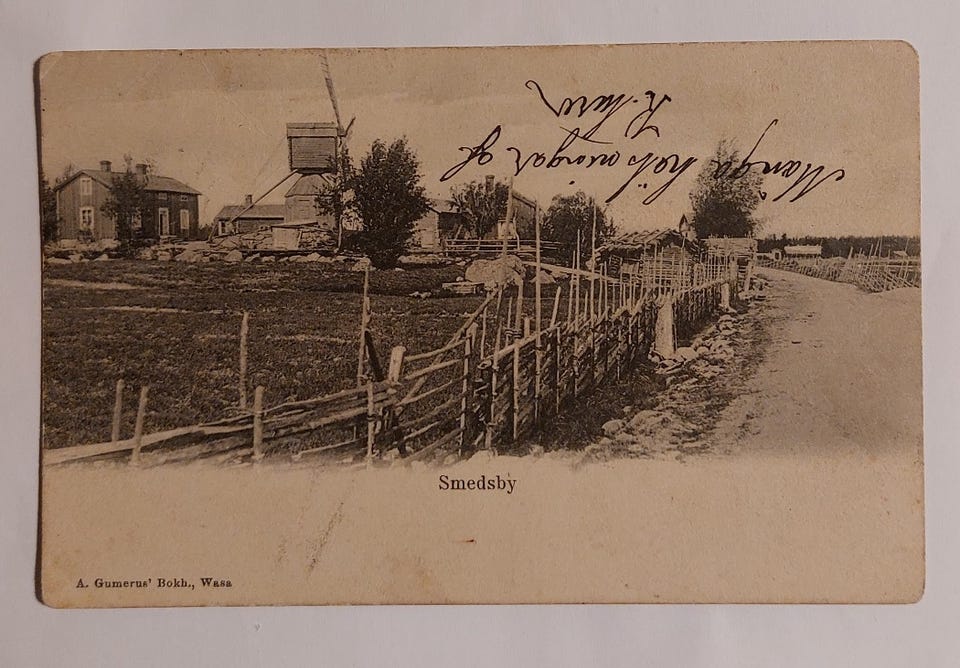 Många helsningar af
Smedsby
A. Gumerus' Bokh., Wasa